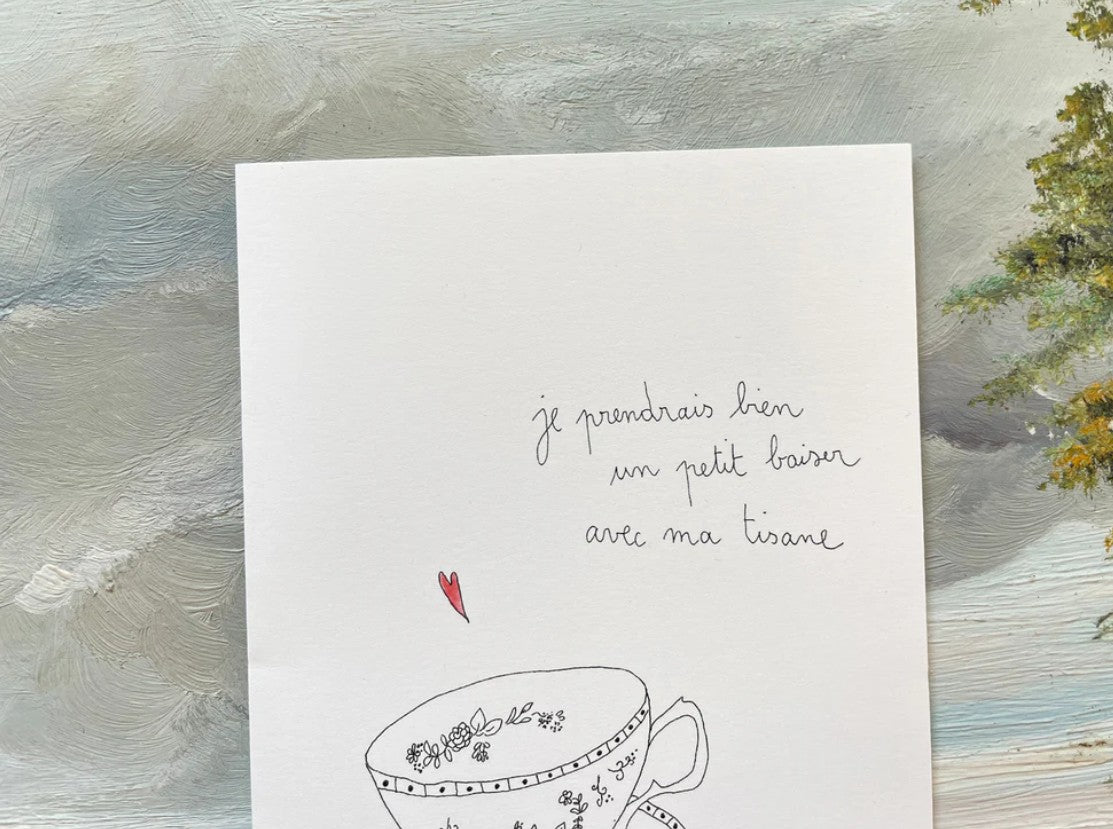 je prendrais bien
un petit baiser
avec ma tisane